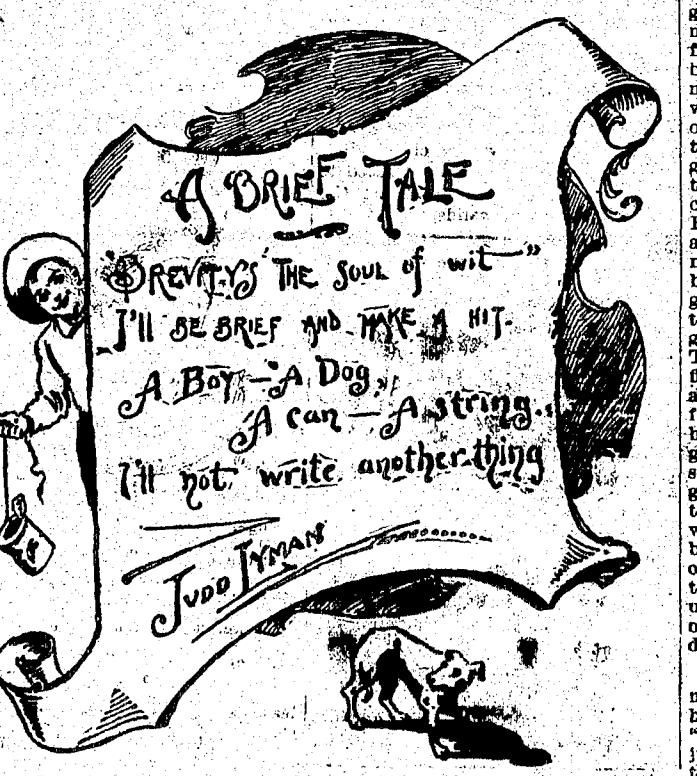 A BRIEF TALE
"BREVITY'S THE SOUL of wit"
I'll BE BRIEF AND MAKE A HIT.
A BOY — A DOG,
A can — A string.
I'll not write another thing
JUDD LYMAN